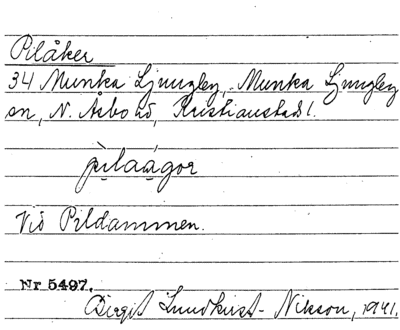 Pilåker
34 Munka Ljungby, Munka Ljungby
sn, N. Åsbo hd, Kristianstads l.
pìlaágor
Vid Pildammen.
Nr 5497.
Birgit Lundkvist-Nilsson, 1941.